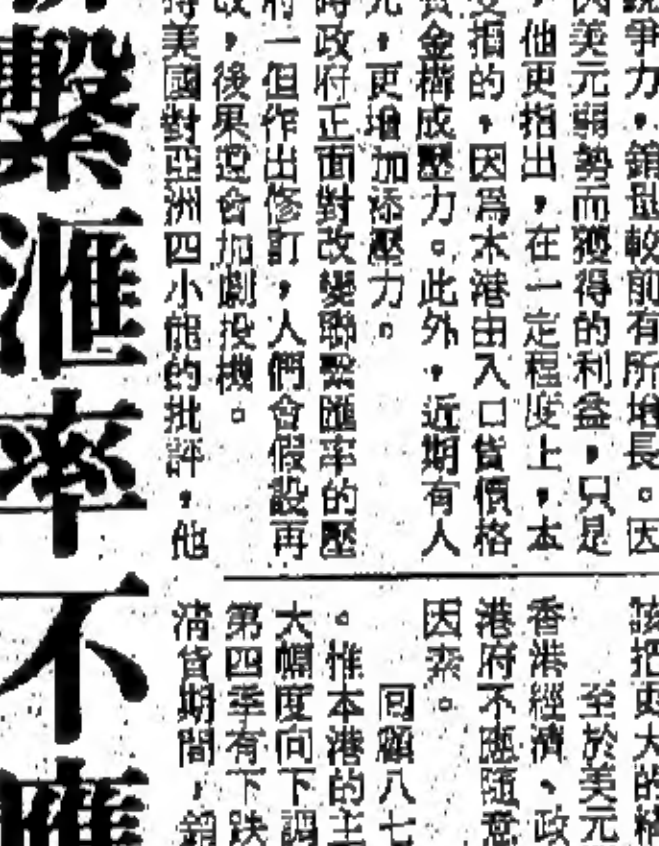 競爭力，銷量較前有所增長。因
因美元弱勢而獲得的利益，只是
，他更指出，在一定程度上，本
受損的，因為本港由入口貨價格
資金構成壓力。此外，近期有人
元，更增加添壓力。
時政府正面對改變聯繫匯率的壓
府一但作出修訂，人們會假設再
改，後果還會加劇投機。
時美國對亞洲四小龍的批評，他
該把更大的精
至於美元
香港經濟、政
港府不應隨意
因素。
回顧八七
。惟本港的主
大幅度向下調
第四季有下跌
清貨期間，銷
繫滙率不應